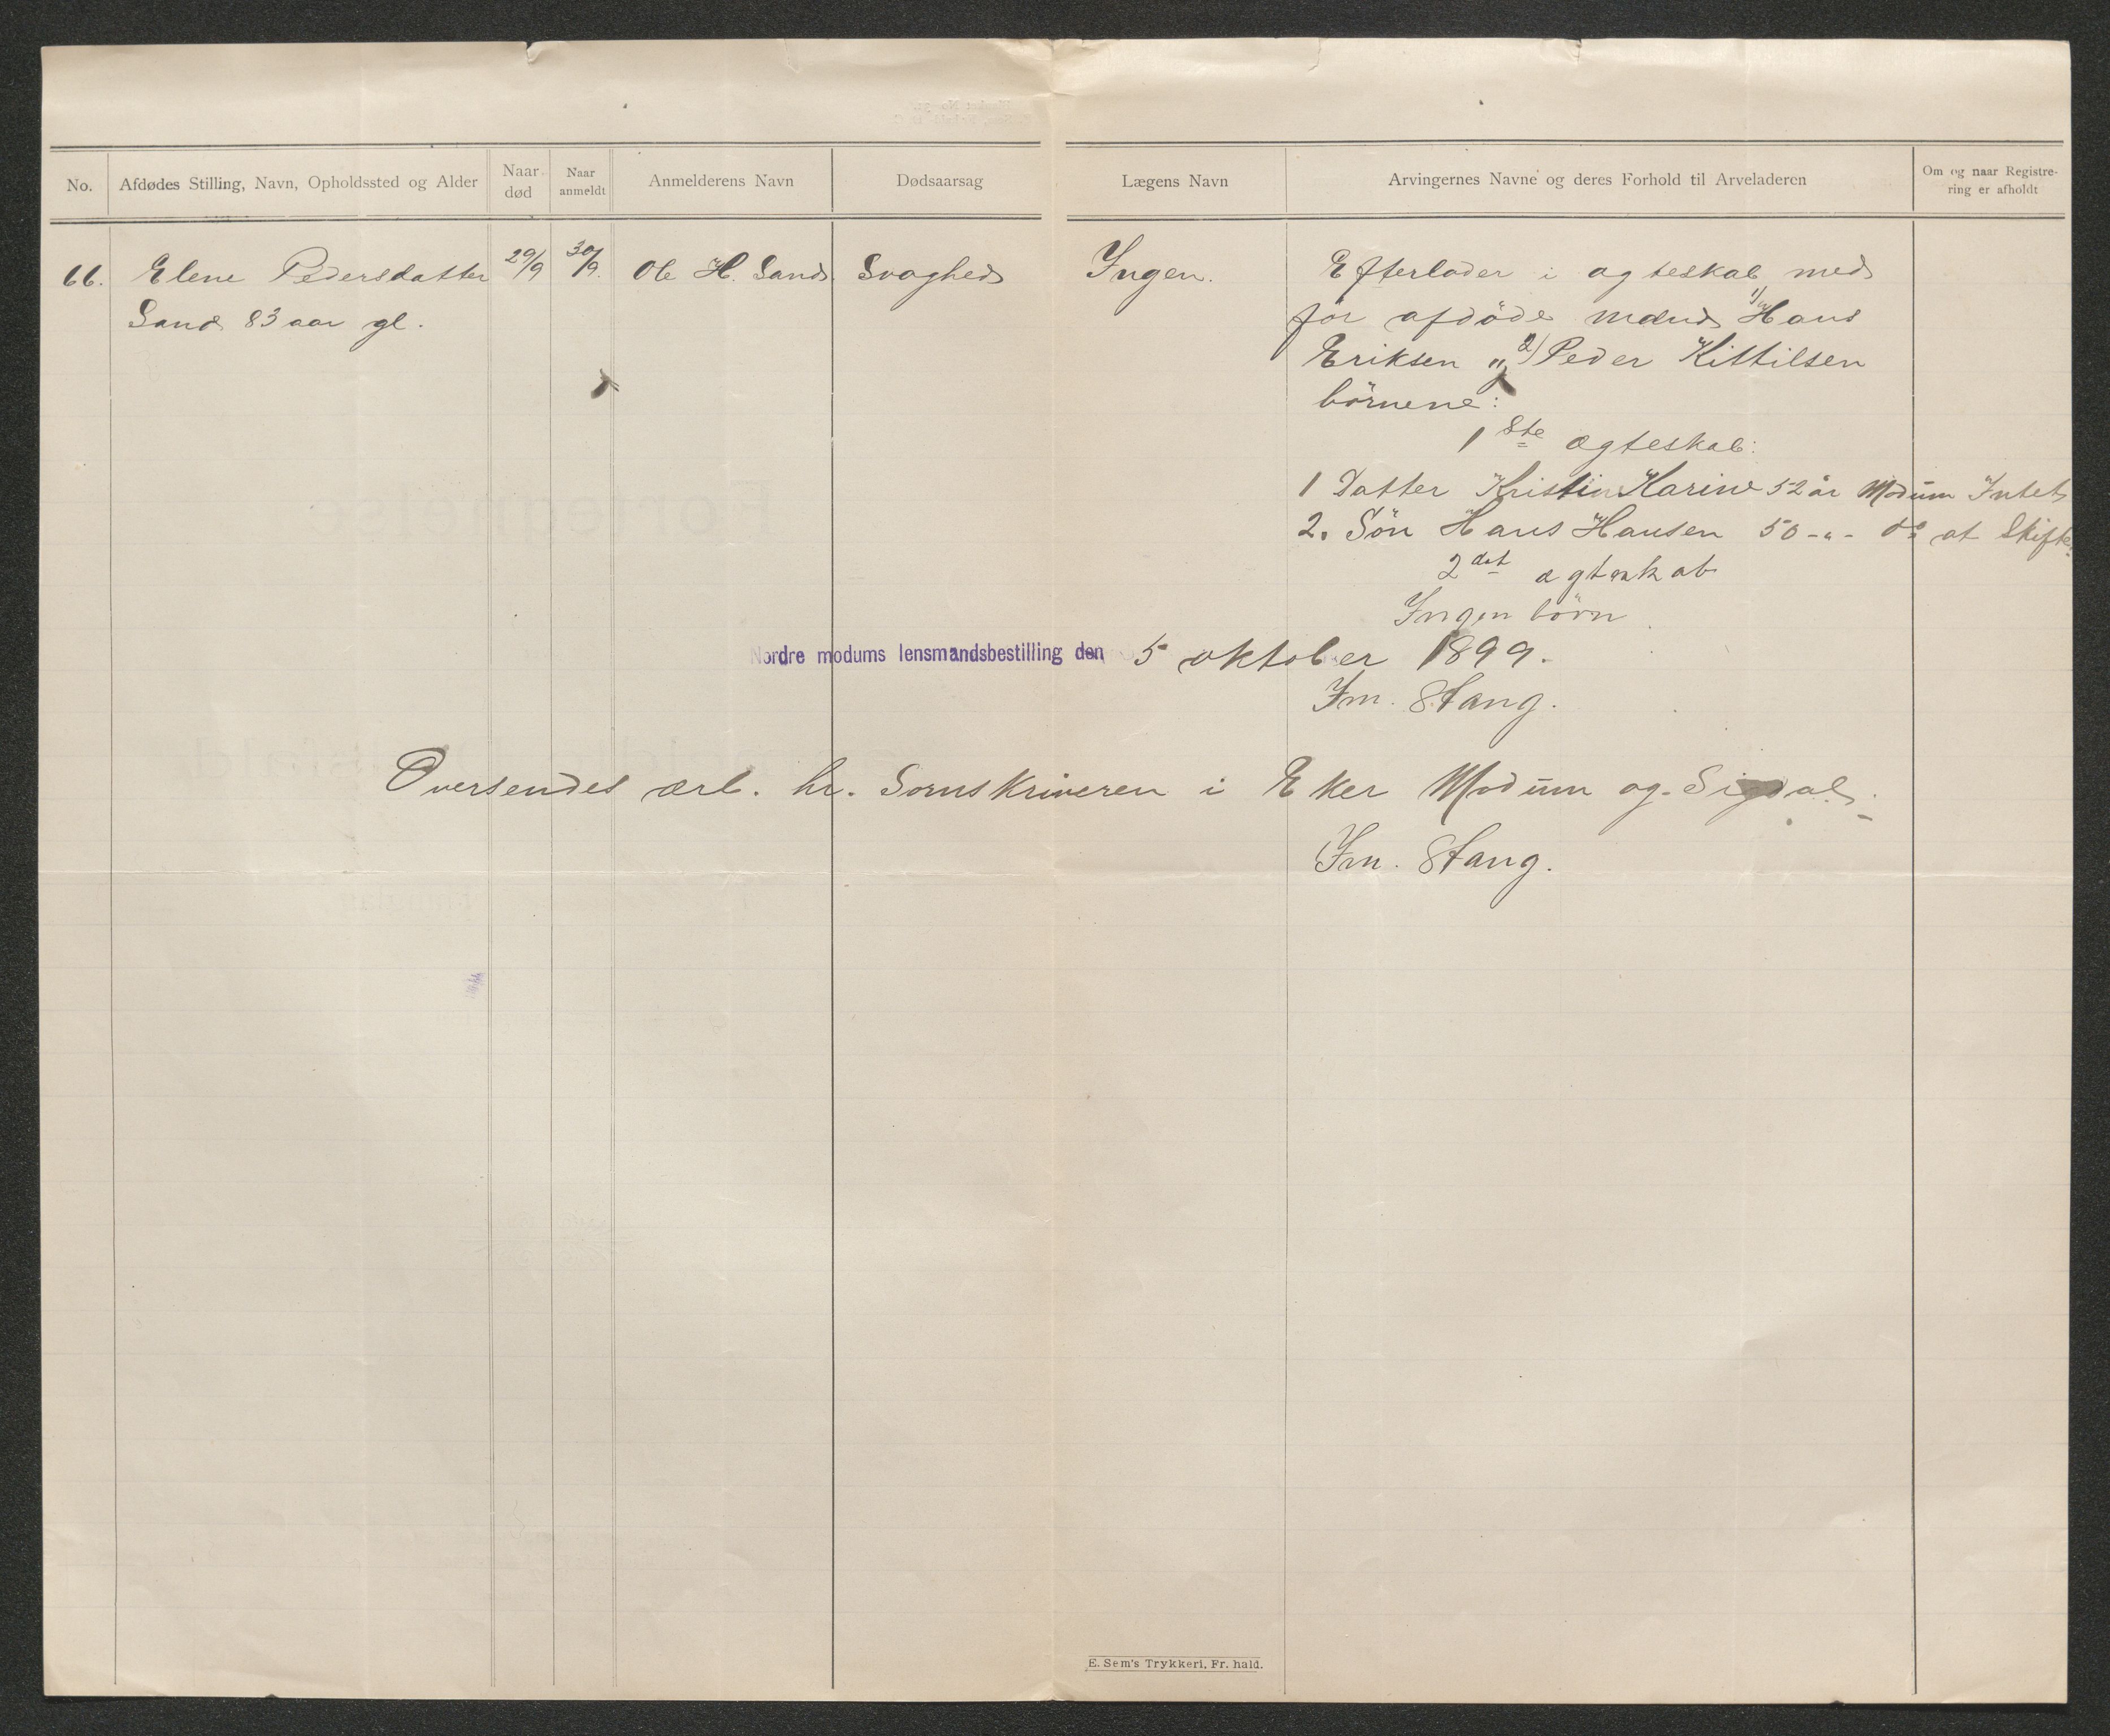 No.
Afdødes Stilling, Navn, Opholdssted og Alder
Naar død
Naar anmeldt
Anmelderens Navn
Dødsaarsag
Lægens Navn
Arvingernes Navne og deres Forhold til Arveladeren
Om og naar Registre-
ring er afholdt
66. Elene Pedersdatter 29/9 30/9. Ole H. Sand. Svaghed Ingen. Efterlader i ægteskab med
Sand 83 aar gl. før afdøde mænd 1) Hans
Eriksen " 2) Peder Kittilsen
börnene:
1ste ægteskab:
1 Datter Kristin Karine 52 år Modum Intet
2. Sön Hans Hansen 50 -"- do at Skifte.
2det ægteskab
Ingen börn
Nordre modums lensmandsbestilling den 5 oktober 1899.
Im. Stang.
Oversendes ærb. hr. Sornskriveren i Eker Modum og Sigdal.
Im. Stang.
E. Sem's Trykkeri, Fr. hald.